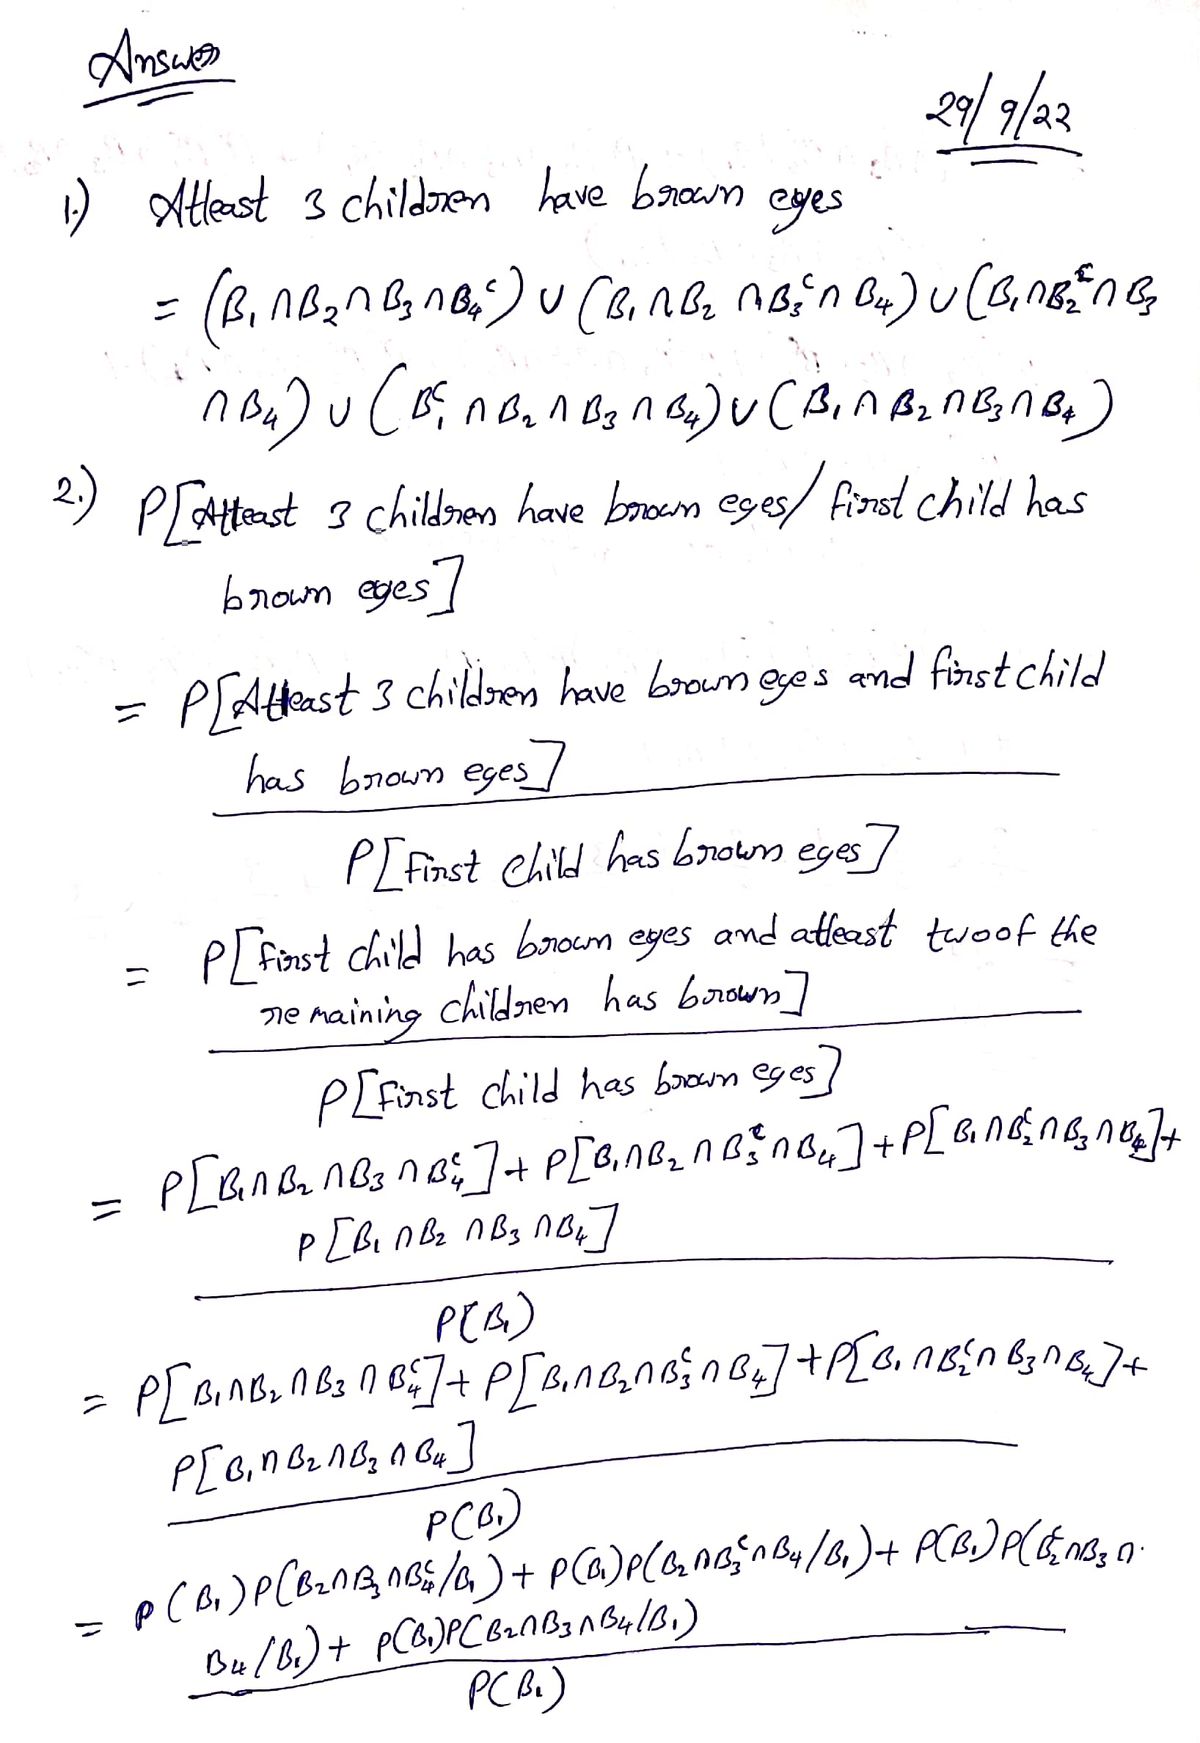 Answer
29/9/22
1.) Atleast 3 children have brown eyes
= (B₁∩B₂∩B₃∩B₄ᶜ) ∪ (B₁∩B₂∩B₃ᶜ∩B₄) ∪ (B₁∩B₂ᶜ∩B₃
∩B₄) ∪ (B₁ᶜ∩B₂∩B₃∩B₄) ∪ (B₁∩B₂∩B₃∩B₄)
2.) P[Atleast 3 children have brown eyes/ first child has
brown eyes]
= P[Atleast 3 children have brown eyes and first child
has brown eyes]
P[First child has brown eyes]
= P[First child has brown eyes and atleast two of the
remaining children has brown]
P[First child has brown eyes]
= P[B₁∩B₂∩B₃∩B₄ᶜ] + P[B₁∩B₂∩B₃ᶜ∩B₄] + P[B₁∩B₂ᶜ∩B₃∩B₄] +
P[B₁∩B₂∩B₃∩B₄]
P(B₁)
= P[B₁∩B₂∩B₃∩B₄ᶜ] + P[B₁∩B₂∩B₃ᶜ∩B₄] + P[B₁∩B₂ᶜ∩B₃∩B₄] +
P[B₁∩B₂∩B₃∩B₄]
P(B₁)
= P(B₁)P(B₂∩B₃∩B₄ᶜ/B₁) + P(B₁)P(B₂∩B₃ᶜ∩B₄/B₁) + P(B₁)P(B₂ᶜ∩B₃∩
B₄/B₁) + P(B₁)P(B₂∩B₃∩B₄/B₁)
P(B₁)